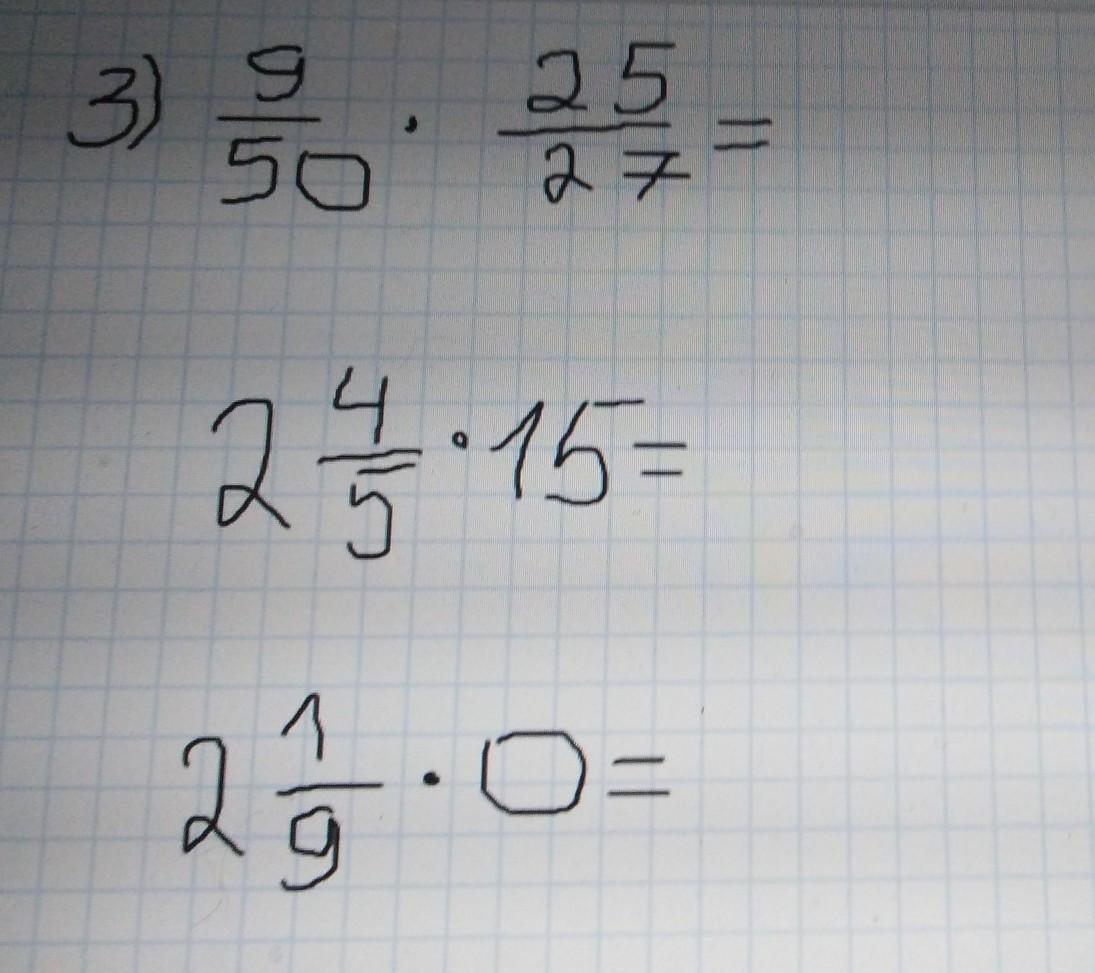 3) 9/50 · 25/27 =
2 4/5 · 15 =
2 1/9 · 0 =